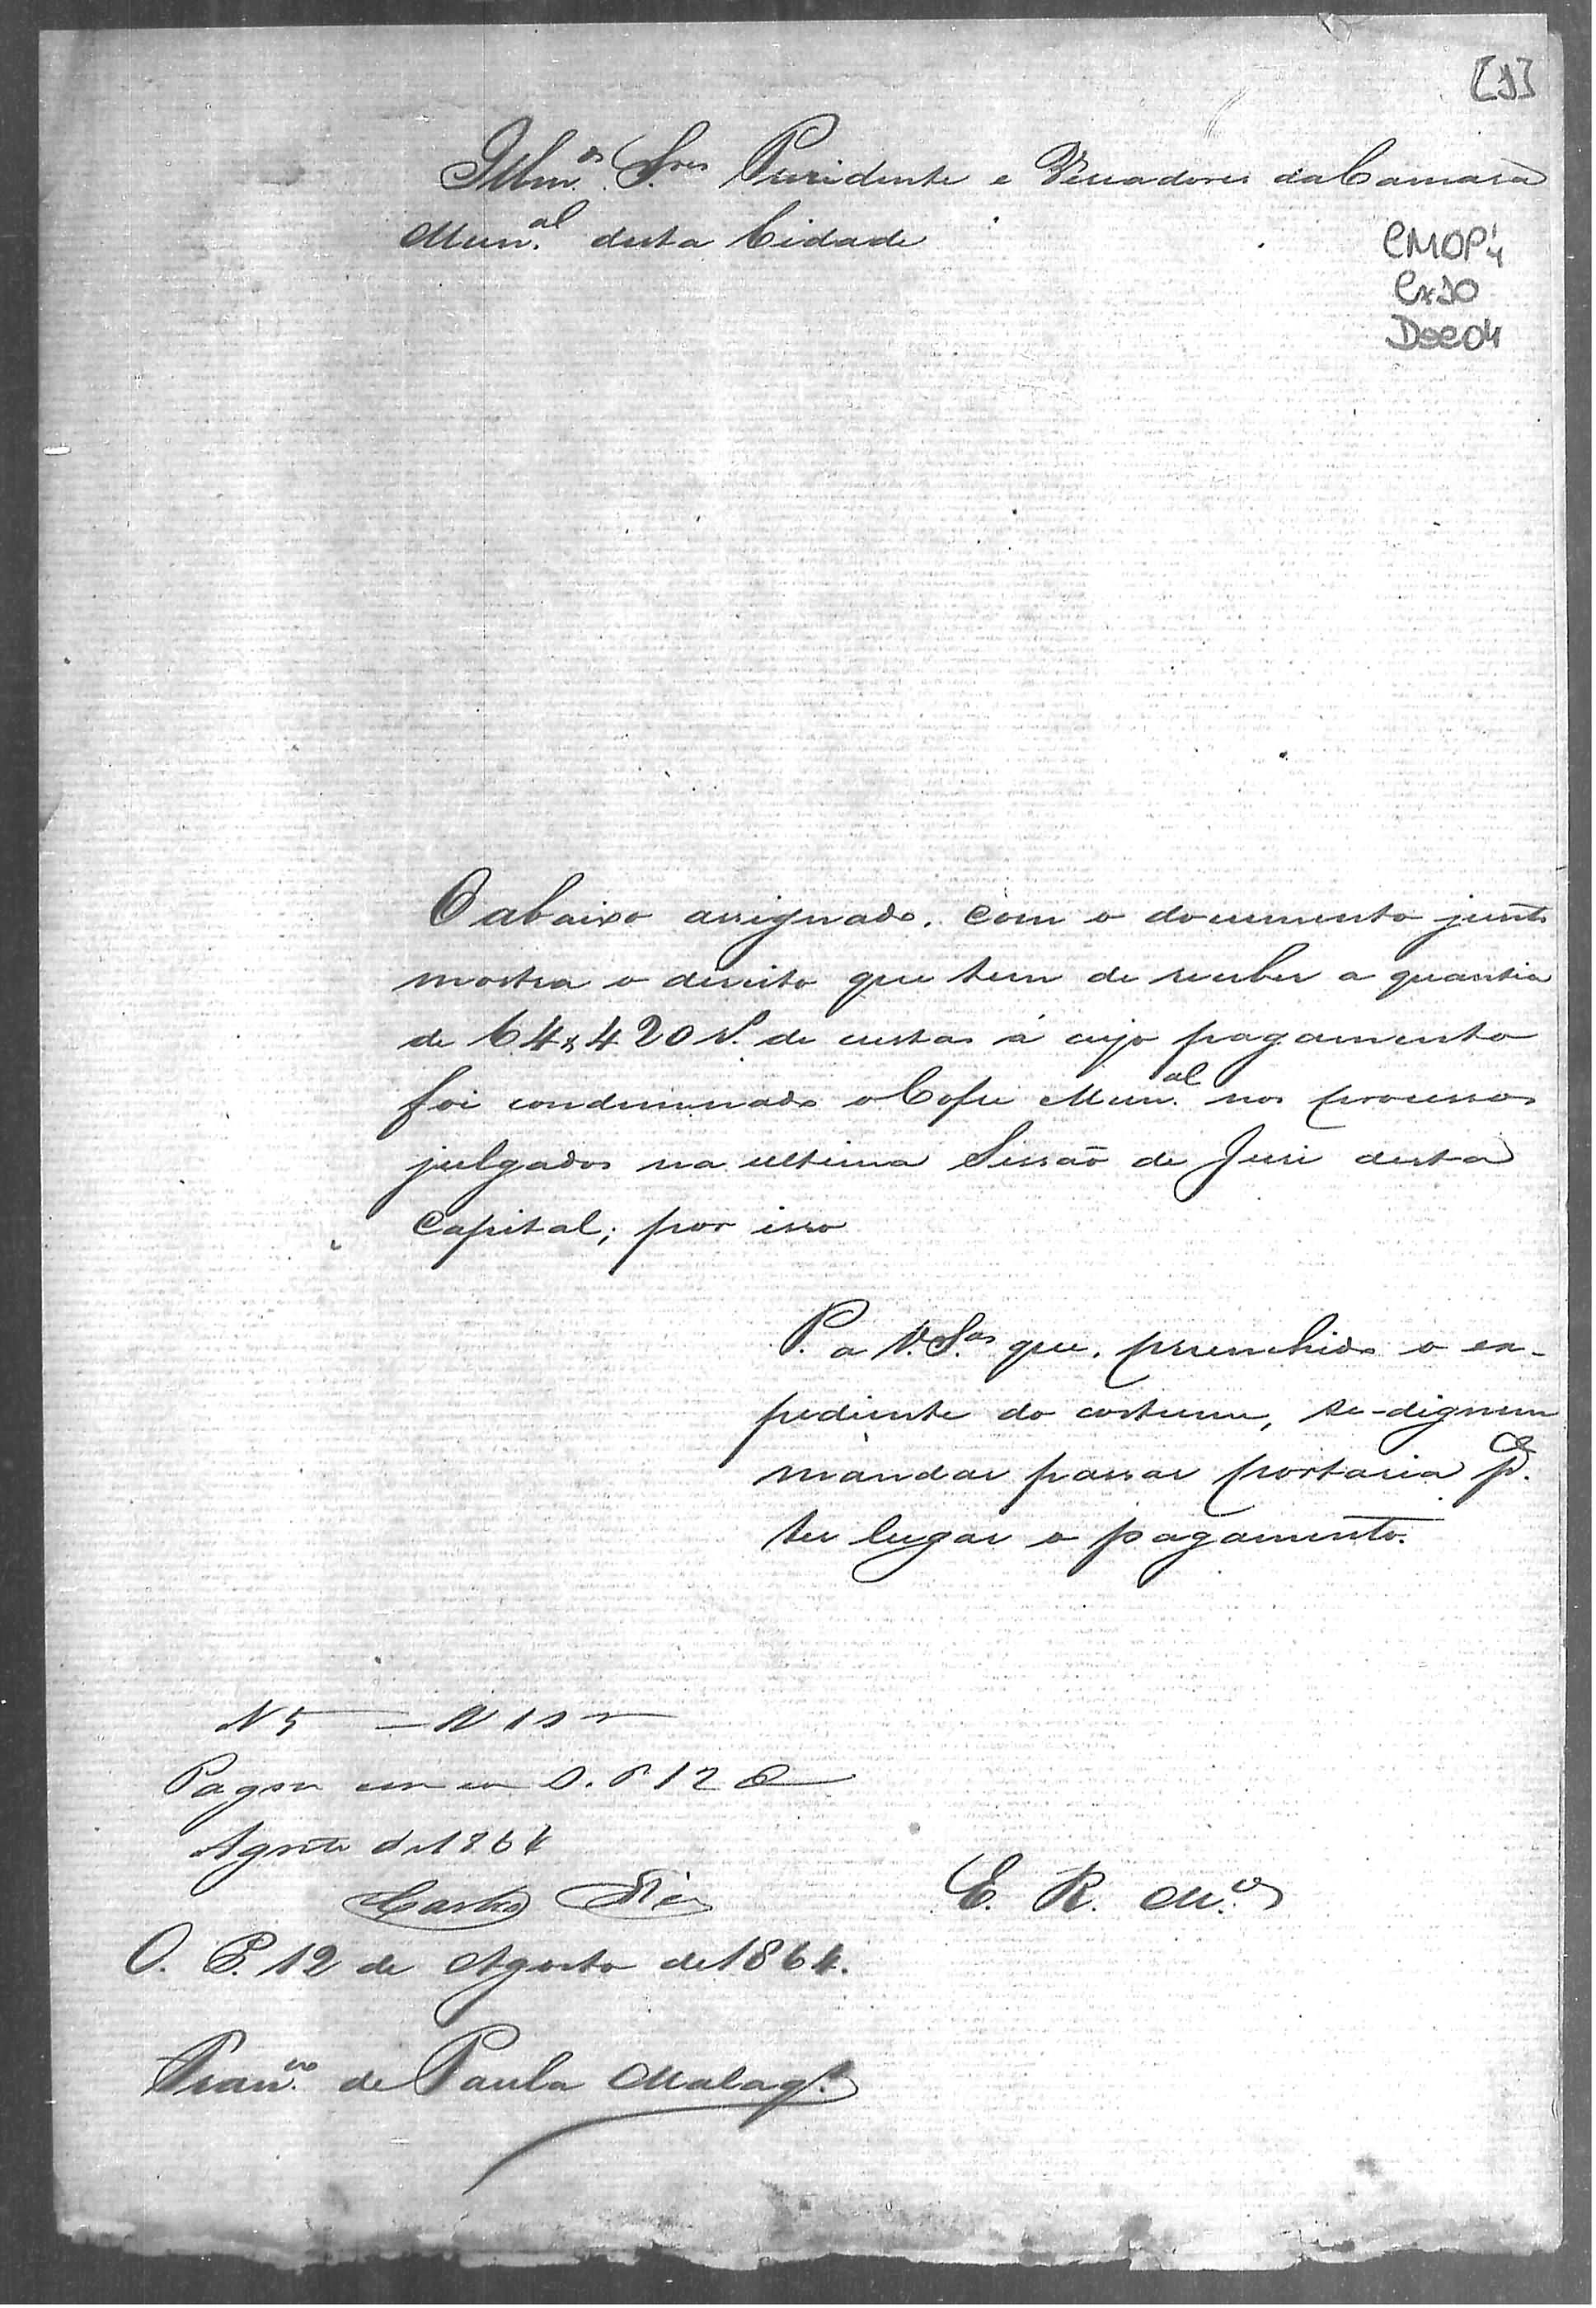 [1]
Illm.os S.res Prezidente e Vereadores da Camara
Mun.al desta Cidade
CMOP
Cx10
Doc04
O abaixo assignado, com o documento junto
mostra o direito que tem de receber a quantia
de 64$420 r.s de custas á cujo pagamento
foi condemnado o Cofre Mun.al nos processos
julgados na ultima Sessão de Jury desta
Capital; por isso
P. a V. S.as que, preenchido o ex-
pediente do costume, se-dignem
mandar passar portaria p.a
ter lugar o pagamento.
N 5
Pagou
Agosto de 1864
Carlos
E. R. M.ce
O. P. 12 de Agosto de 1864.
Fran.co de Paula Malag.